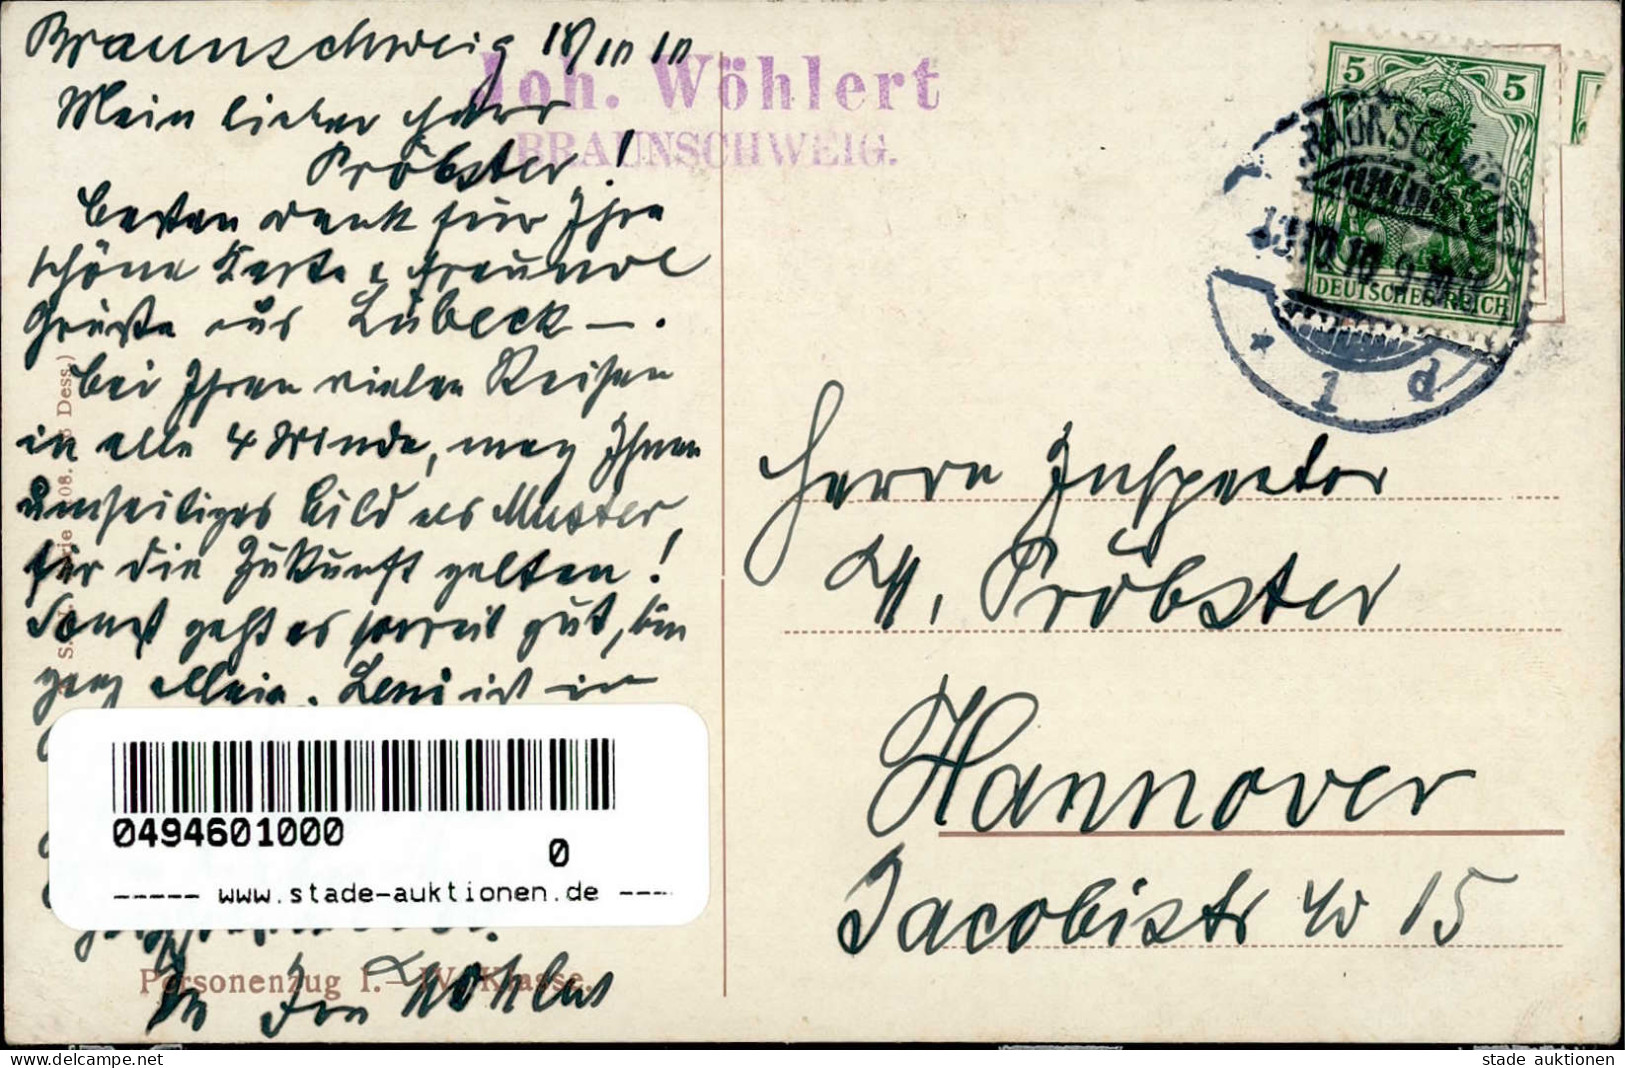 Braunschweig 18/10 10
Joh. Wöhlert
BRAUNSCHWEIG.
Mein lieber Herr
Pröbster!
Besten Dank für Ihre
schöne Karte & freundl
Grüße aus Lübeck —.
Bei Ihren vielen Reisen
in alle 4 Winde, mag Ihnen
umseitiges Bild als Muster
für die Zukunft gelten!
Sonst geht es soweit gut, bin
ganz allein. Leni ist in
0494601000
0
----- www.stade-auktionen.de ----
Personenzug I.–IV. Klasse.
Wöhlert
5 5
DEUTSCHES REICH
BRAUNSCHWEIG
10.10.9
* 1 d
Herrn Inspector
Pröbster
Hannover
Jacobistr 15
Dess.)
stade auktionen
www.delcampe.net
stade auktionen